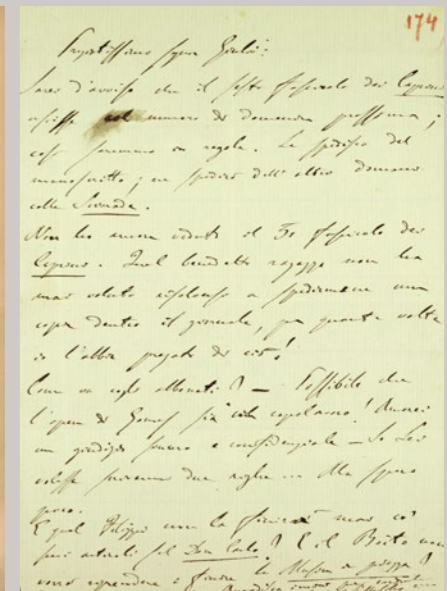 174
Pregiatissimo signor Giulio!
Sarei d'avviso che il sesto fascicolo dei Capricci
uscisse col numero di domenica prossima;
così saremmo in regola. Le spedisco del
manoscritto; ne spedirò dell'altro domani
colla
Non ho ancora veduto il 5º fascicolo dei
Quel benedetto ragazzo non ha
mai voluto risolversi a spedirmene una
copia dentro il giornale, per quante volte
io l'abbia pregato di ciò!
Come va cogli abbonati? — Possibile che
l'opera di Gomes sia un capolavoro! Amerei
un giudizio sincero e confidenziale — Se Lei
volesse scrivermi due righe ... Ma spero
poco.
E quel Filippi non la finirà mai co'
suoi articoli sul Don Carlo? E il Boito non
vorrà riprendere e finire la Musica in piazza?